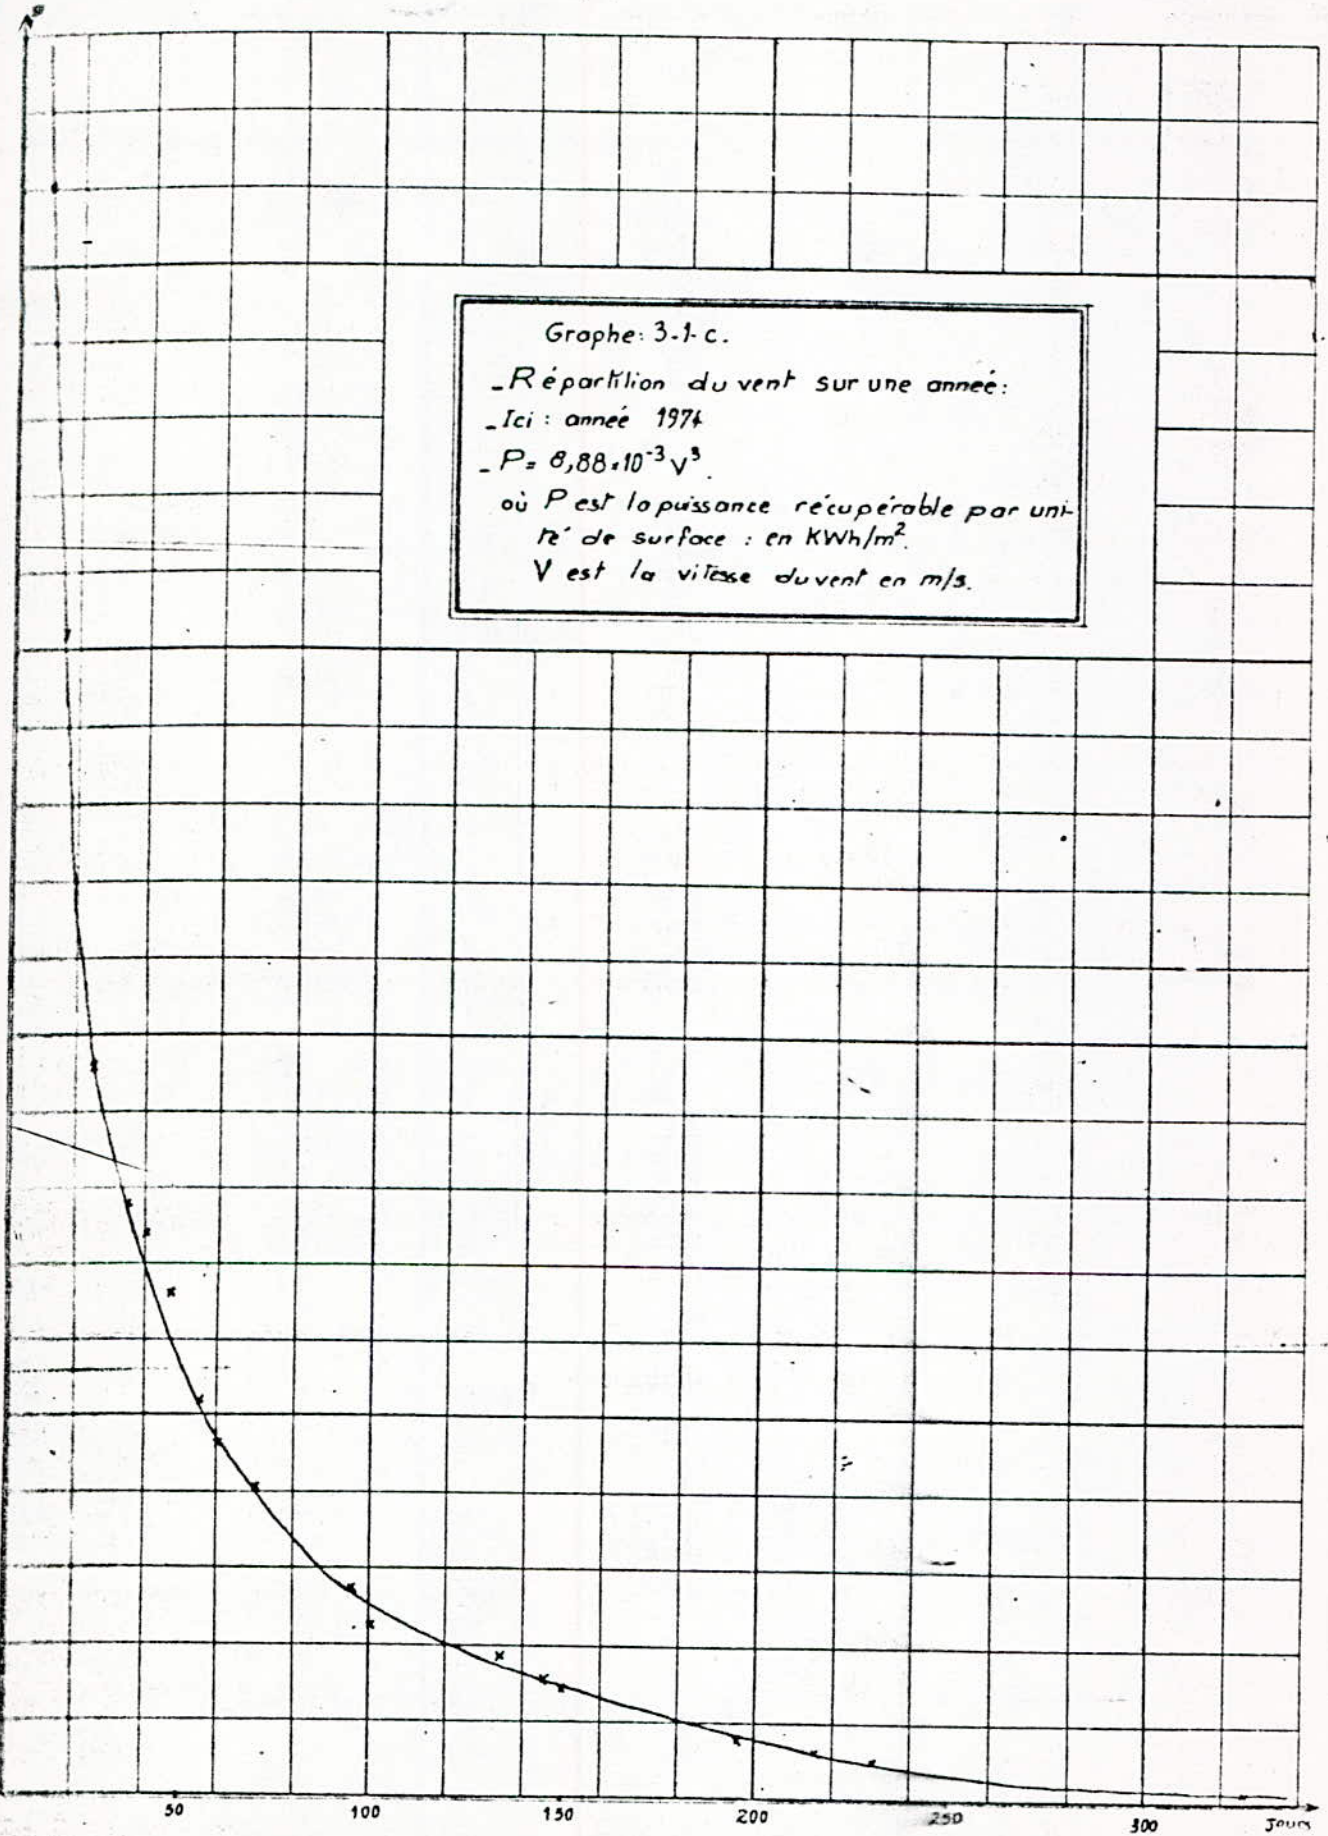 P
Graphe: 3-1-c.
- Répartition du vent sur une année:
- Ici : année 1974
- P = 8,88.10⁻³ V³
où P est la puissance récupérable par uni-
té de surface : en KWh/m².
V est la vitesse du vent en m/s.
50 100 150 200 250 300 Jours